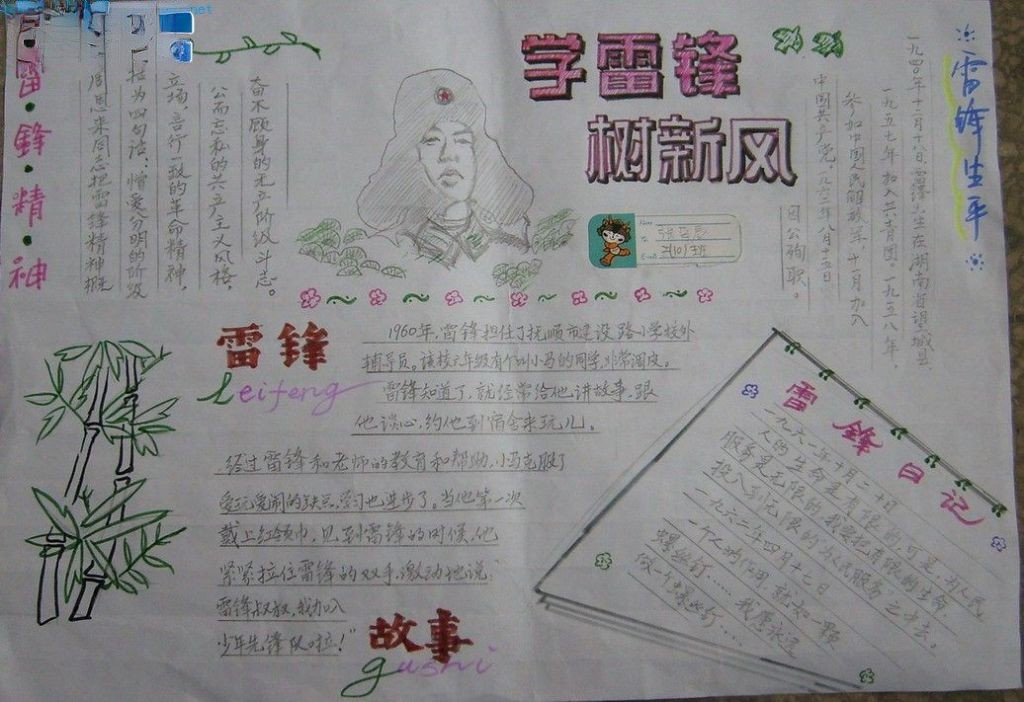 学雷锋
树新风
雷·鋒·精·神
周恩来同志把雷锋精神概
括为四句话：憎爱分明的阶级
立场，言行一致的革命精神，
公而忘私的共产主义风格，
奋不顾身的无产阶级斗志。
雷锋生平
一九四〇年十二月十八日雷锋出生在湖南省望城县
一九五七年加入共青团一九五八年
参加中国人民解放军十月加入
中国共产党，一九六二年八月十五日
因公殉职。
雷锋
Leifeng
1960年，雷锋担任了抚顺市建设路小学校外
辅导员。该校六年级有个叫小马的同学，非常调皮。
雷锋知道了，就经常给他讲故事，跟
他谈心，约他到宿舍来玩儿。
经过雷锋和老师的教育和帮助，小马克服了
爱玩爱闹的缺点，学习也进步了。当他第一次
戴上红领巾，见到雷锋的时候，他
紧紧拉住雷锋的双手，激动地说：
雷锋叔叔，我加入
少年先锋队啦！"
故事
gushi
雷锋日记
一九六一年十月二十日
人的生命是有限的，可是，为人民
服务是无限的，我要把有限的生命，
投入到无限的"为人民服务"之中去。
一九六二年四月十七日
一个人的作用，就如一颗
螺丝钉……我愿永远
做一个螺丝钉……